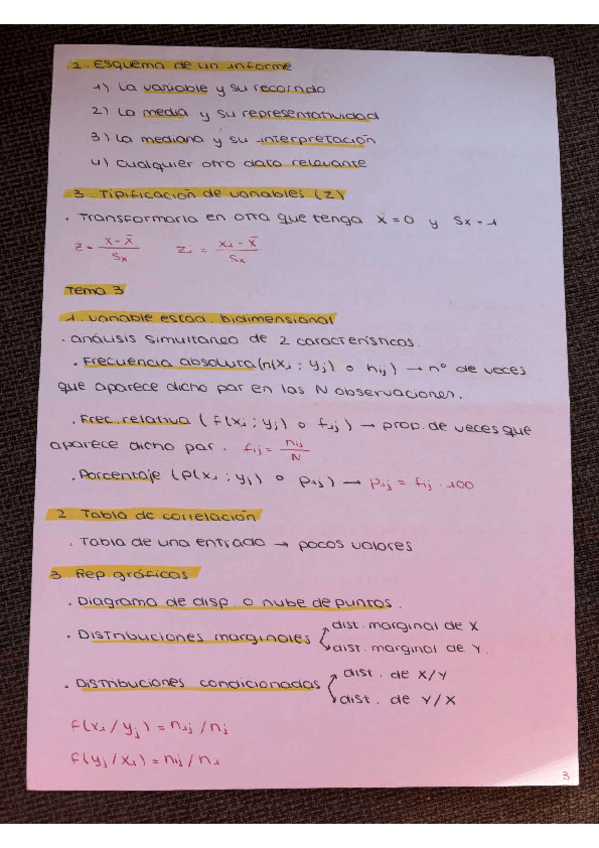 2. Esquema de un informe
1) La variable y su recorrido
2) La media y su representatividad
3) La mediana y su interpretación
4) cualquier otro dato relevante
3. Tipificación de variables (Z)
. Transformarla en otra que tenga x̄ = 0 y Sx = 1
z = (x - x̄)/Sx   zi = (xi - x̄)/Sx
Tema 3
1. variable estad. bidimensional
. análisis simultaneo de 2 características.
. Frecuencia absoluta (n(xi ; yj) o nij) → nº de veces
que aparece dicho par en las N observaciones.
. Frec. relativa (f(xi ; yj) o fij) → prop. de veces que
aparece dicho par. fij = nij/N
. Porcentaje (p(xi ; yj) o pij) → pij = fij · 100
2. Tabla de correlación
. Tabla de una entrada → pocos valores
3. Rep. gráficas
. Diagrama de disp. o nube de puntos.
. Distribuciones marginales
dist. marginal de X
dist. marginal de Y.
. Distribuciones condicionadas
dist. de X/Y
dist. de Y/X
f(xi / yj) = nij / nj
f(yj / xi) = nij / ni
3